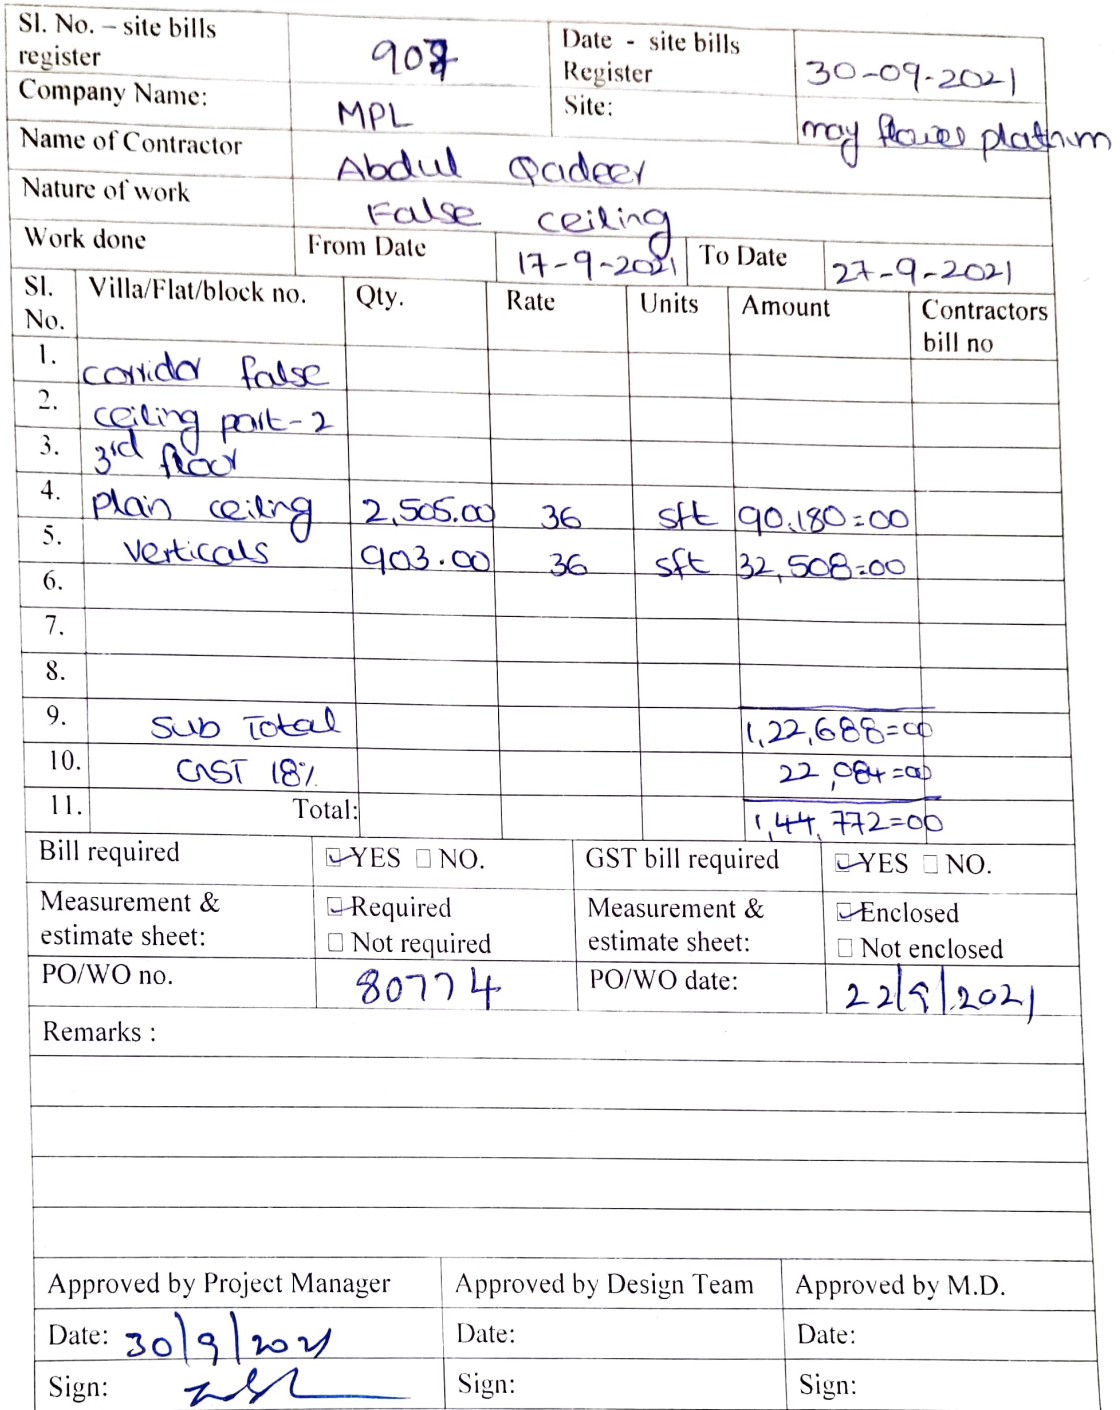 Sl. No. – site bills register Date - site bills Register 30-09-2021
Company Name: MPL Site: may flower platinum
Name of Contractor Abdul Qadeer
Nature of work False ceiling
Work done From Date 17-9-2021 To Date 27-9-2021
Sl. No. Villa/Flat/block no. Qty. Rate Units Amount Contractors bill no
1. corridor false
2. ceiling part-2
3. 3rd floor
4. plain ceiling 2,505.00 36 sft 90,180=00
5. Verticals 903.00 36 sft 32,508=00
6.
7.
8.
9. Sub Total 1,22,688=00
10. GST 18% 22,084=00
11. Total: 1,44,772=00
Bill required YES NO. GST bill required YES NO.
Measurement & estimate sheet: Required Not required Measurement & estimate sheet: Enclosed Not enclosed
PO/WO no. 80774 PO/WO date: 22/9/2021
Remarks :
Approved by Project Manager Approved by Design Team Approved by M.D.
Date: 30/9/2021 Date: Date:
Sign: Sign: Sign: